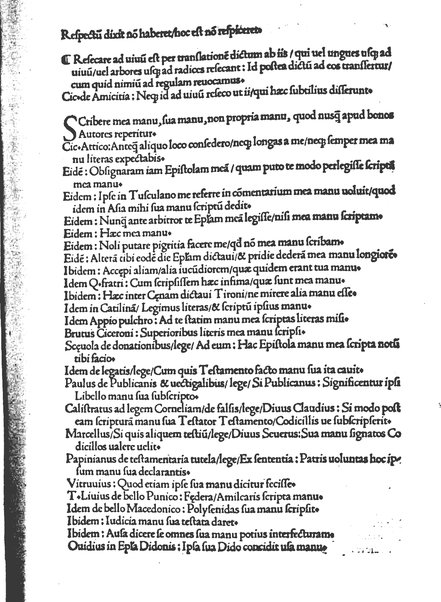 Respectū dixit nō haberet/hoc est nō respiceret•
¶ Resecare ad uiuū est per translationē dictum ab iis / qui uel ungues usq; ad
uiuū/uel arbores usq; ad radices resecant : Id postea dictū ad eos transfertur/
cum quid nimiū ad regulam reuocamus•
Cic•de Amicitia : Neq; id ad uiuū reseco ut ii/qui hæc subtilius disserunt•
SCribere mea manu, sua manu, non propria manu, quod nusq̄ apud bonos
Autores reperitur•
Cic•Attico:Anteq̄ aliquo loco consedero/neq; longas a me/neq; semper mea ma
nu literas expectabis•
Eidē: Obsignaram iam Epistolam meā / quam puto te modo perlegisse scriptā
mea manu•
Eidem : Ipse in Tusculano me referre in cōmentarium mea manu uoluit/quod
idem in Asia mihi sua manu scriptū dedit•
Eidem : Nunq̄ ante arbitror te Epłam meā legisse/nisi mea manu scriptam•
Eidem : Hæc mea manu•
Eidem : Noli putare pigritia facere me/qđ nō mea manu scribam•
Eidē: Alterā tibi eodē die Epłam dictaui/& pridie dederā mea manu longiorē•
Ibidem : Accepi aliam/alia iucūdiorem/quæ quidem erant tua manu•
Idem Q•fratri : Cum scripsissem hæc infima/quæ sunt mea manu•
Ibidem : Hæc inter Cęnam dictaui Tironi/ne mirere alia manu esse•
Idem in Catilinā/ Legimus literas/& scriptū ipsius manu•
Idem Appio pulchro : Ad te statim manu mea scriptas literas misi•
Brutus Ciceroni : Superioribus literis mea manu scripsi•
Scęuola de donationibus/lege/ Ad eum : Hac Epistola manu mea scripta notū
tibi facio•
Idem de legatis/lege/Cum quis Testamento facto manu sua ita cauit•
Paulus de Publicanis & uectigalibus/ lege/ Si Publicanus : Significentur ipsi
Libello manu sua subscripto•
Calistratus ad legem Corneliam/de falsis/lege/Diuus Claudius : Si modo post
eam scripturā manu sua Testator Testamento/Codicillis ue subscripserit•
Marcellus/Si quis aliquem testiū/lege/Diuus Seuerus:Sua manu signatos Co
dicillos ualere uelit•
Papinianus de testamentaria tutela/lege/Ex sententia : Patris uoluntas hoc ip•
sum manu sua declarantis•
Vitruuius : Quod etiam ipse sua manu dicitur fecisse•
T•Liuius de bello Punico : Fędera/Amilcaris scripta manu•
Idem de bello Macedonico : Polysenidas sua manu scripsit•
Ibidem : Iudicia manu sua testata daret•
Ibidem : Ausa dicere se omnes sua manu potius interfecturam•
Ouidius in Epła Didonis : Ipsa sua Dido concidit usa manu•